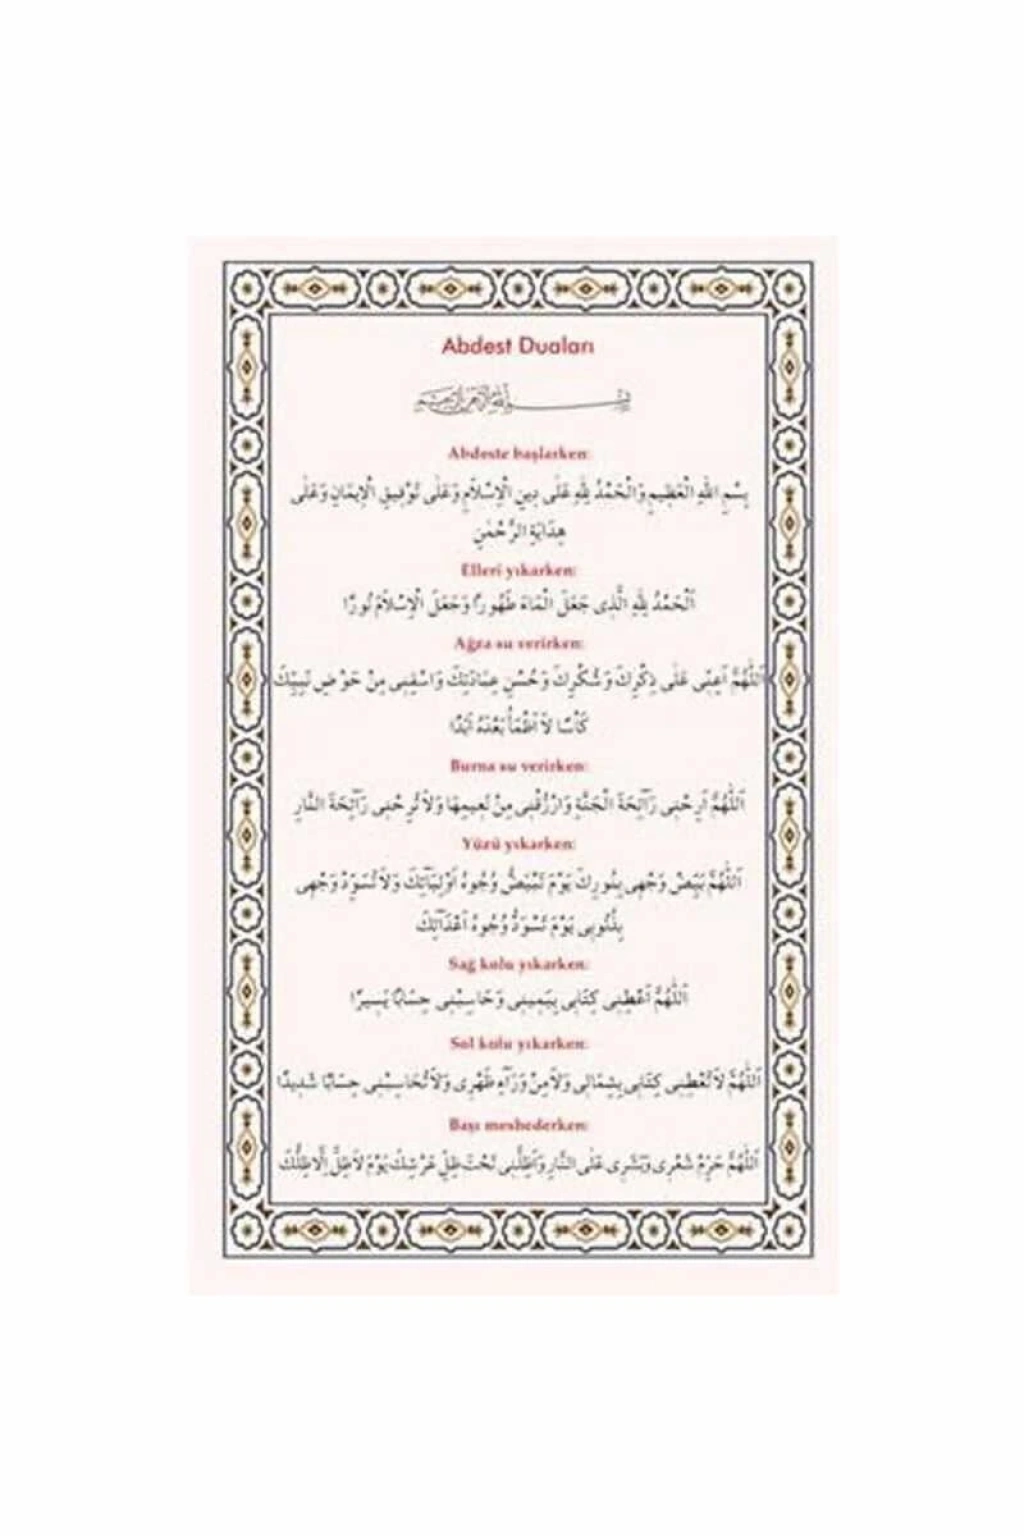 Abdest Duaları
بسم الله الرحمن الرحيم
Abdeste başlarken:
بِسْمِ اللّٰهِ الْعَظِيمِ وَالْحَمْدُ لِلّٰهِ عَلٰى دِينِ الْاِسْلَامِ وَعَلٰى تَوْفِيقِ الْاِيمَانِ وَعَلٰى
هِدَايَةِ الرَّحْمٰنِ
Elleri yıkarken:
اَلْحَمْدُ لِلّٰهِ الَّذِى جَعَلَ الْمَاءَ طَهُورًا وَجَعَلَ الْاِسْلَامَ نُورًا
Ağza su verirken:
اَللّٰهُمَّ اَعِنِّى عَلٰى ذِكْرِكَ وَشُكْرِكَ وَحُسْنِ عِبَادَتِكَ وَاسْقِنِى مِنْ حَوْضِ نَبِيِّكَ
كَأْسًا لَا اَظْمَأُ بَعْدَهُ اَبَدًا
Burna su verirken:
اَللّٰهُمَّ اَرِحْنِى رَآئِحَةَ الْجَنَّةِ وَارْزُقْنِى مِنْ نَعِيمِهَا وَلَا تُرِحْنِى رَآئِحَةَ النَّارِ
Yüzü yıkarken:
اَللّٰهُمَّ بَيِّضْ وَجْهِى بِنُورِكَ يَوْمَ تَبْيَضُّ وُجُوهُ اَوْلِيَآئِكَ وَلَا تُسَوِّدْ وَجْهِى
بِذُنُوبِى يَوْمَ تَسْوَدُّ وُجُوهُ اَعْدَآئِكَ
Sağ kolu yıkarken:
اَللّٰهُمَّ اَعْطِنِى كِتَابِى بِيَمِينِى وَحَاسِبْنِى حِسَابًا يَسِيرًا
Sol kolu yıkarken:
اَللّٰهُمَّ لَا تُعْطِنِى كِتَابِى بِشِمَالِى وَلَا مِنْ وَرَآءِ ظَهْرِى وَلَا تُحَاسِبْنِى حِسَابًا شَدِيدًا
Başı meshederken:
اَللّٰهُمَّ حَرِّمْ شَعْرِى وَبَشَرِى عَلَى النَّارِ وَاَظِلَّنِى تَحْتَ ظِلِّ عَرْشِكَ يَوْمَ لَا ظِلَّ اِلَّا ظِلُّكَ